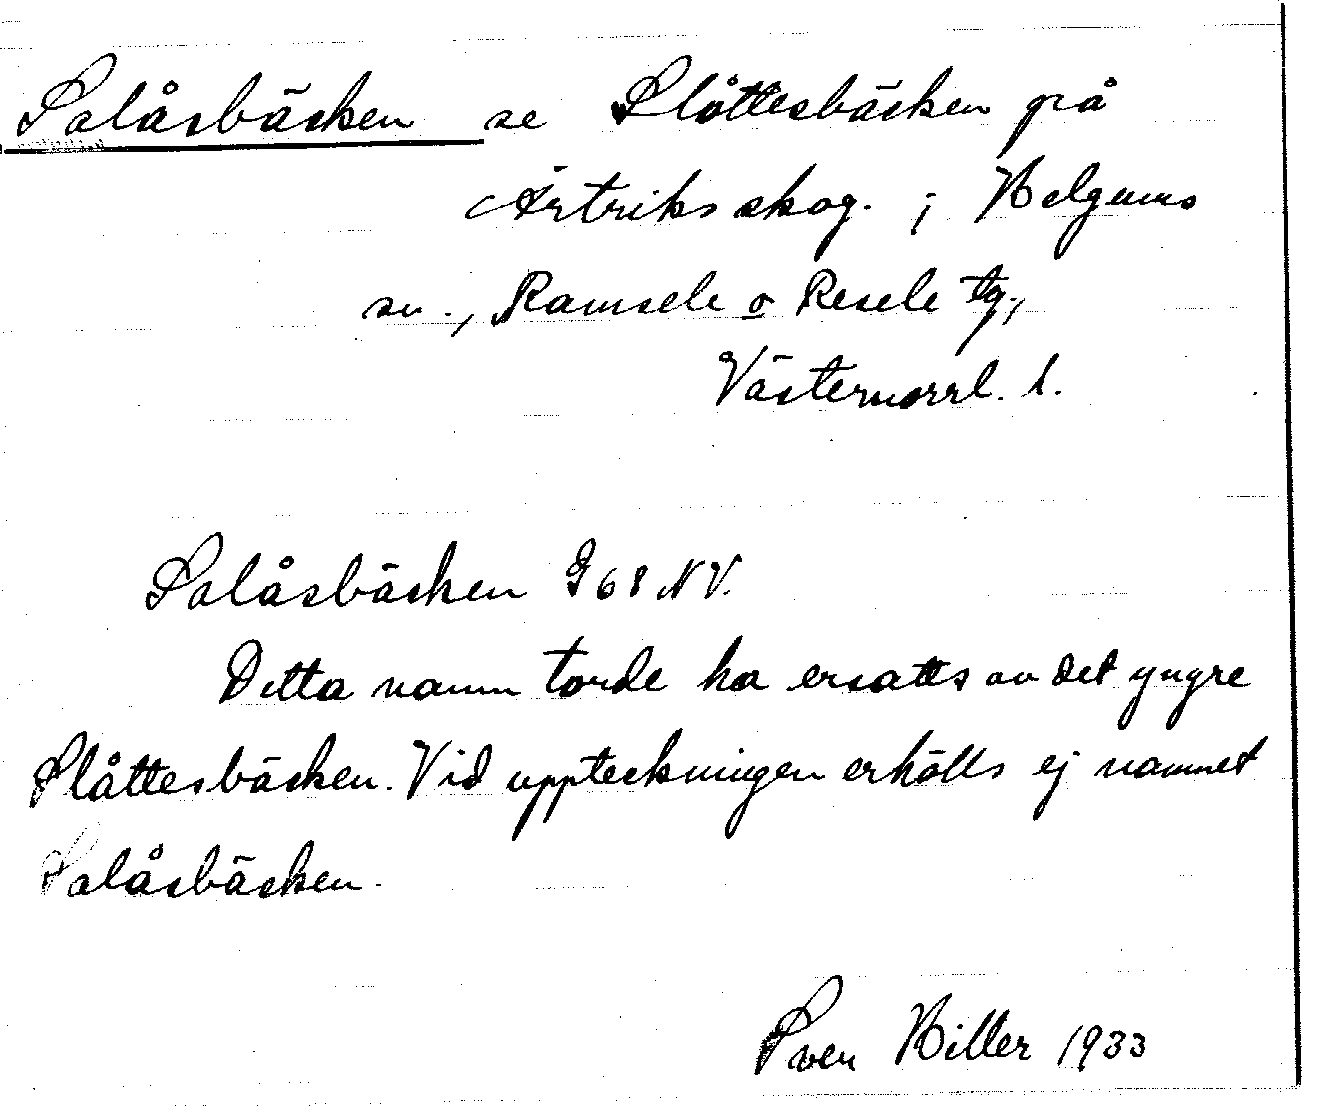 Salåsbäcken se Slåttesbäcken på
Ärtriks skog. i Helgums
sn., Ramsele o Resele tg,
Västernorrl. l.
Salåsbäcken G 68 NV.
Detta namn torde ha ersatts av det yngre
Slåttesbäcken. Vid uppteckningen erhölls ej namnet
Salåsbäcken.
Sven Hiller 1933